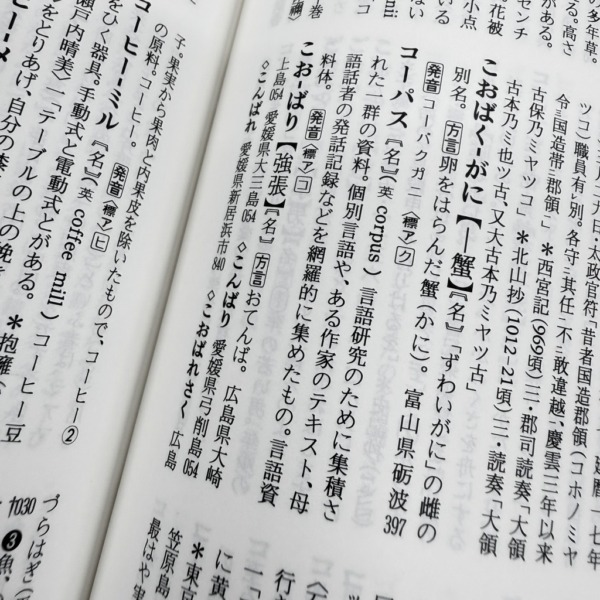 の多年草。
がある。高さ
センチ
。花被
小点
ない
巻
二月二六日・太政官符「昔者国造郡領(コホノミヤ
ツコ)職員有別。各守其任不敢違越、慶雲三年以来
令国造帯郡領」＊西宮記(969頃)三・郡司読奏「大領
古保乃ミヤツコ」＊北山抄(1012-21頃)三・読奏「大領
古本乃ミ也ツ古、又大古本乃ミヤツ古」
こおばく‐がに【―蟹】『名』「ずわいがに」の雌の
別名。方言卵をはらんだ蟹(かに)。富山県砺波397
発音コーバクガニ〈標ア〉ク
コーパス『名』(英 corpus)言語研究のために集積さ
れた一群の資料。個別言語や、ある作家のテキスト、母
語話者の発話記録などを網羅的に集めたもの。言語資
料体。発音〈標ア〉コ
こお‐ばり【強張】『名』方言おてんば。広島県大崎
上島054 愛媛県大三島054 ◇こんばり 愛媛県弓削島054
◇こんばれ 愛媛県新居浜市840 ◇こおばれさく 広島
子。果実から果肉と内果皮を除いたもので、コーヒー②
の原料。コーヒー。発音〈標ア〉ヒ
コーヒー‐ミル『名』(英 coffee mill)コーヒー豆
をひく器具。手動式と電動式とがある。＊抱擁
瀬戸内晴美〉一「テーブルの上の挽
をとりあげ、自分の
づらはぎ
†030
❸魚、
笠原島
最はや
＊東京
に黄
一「
行き